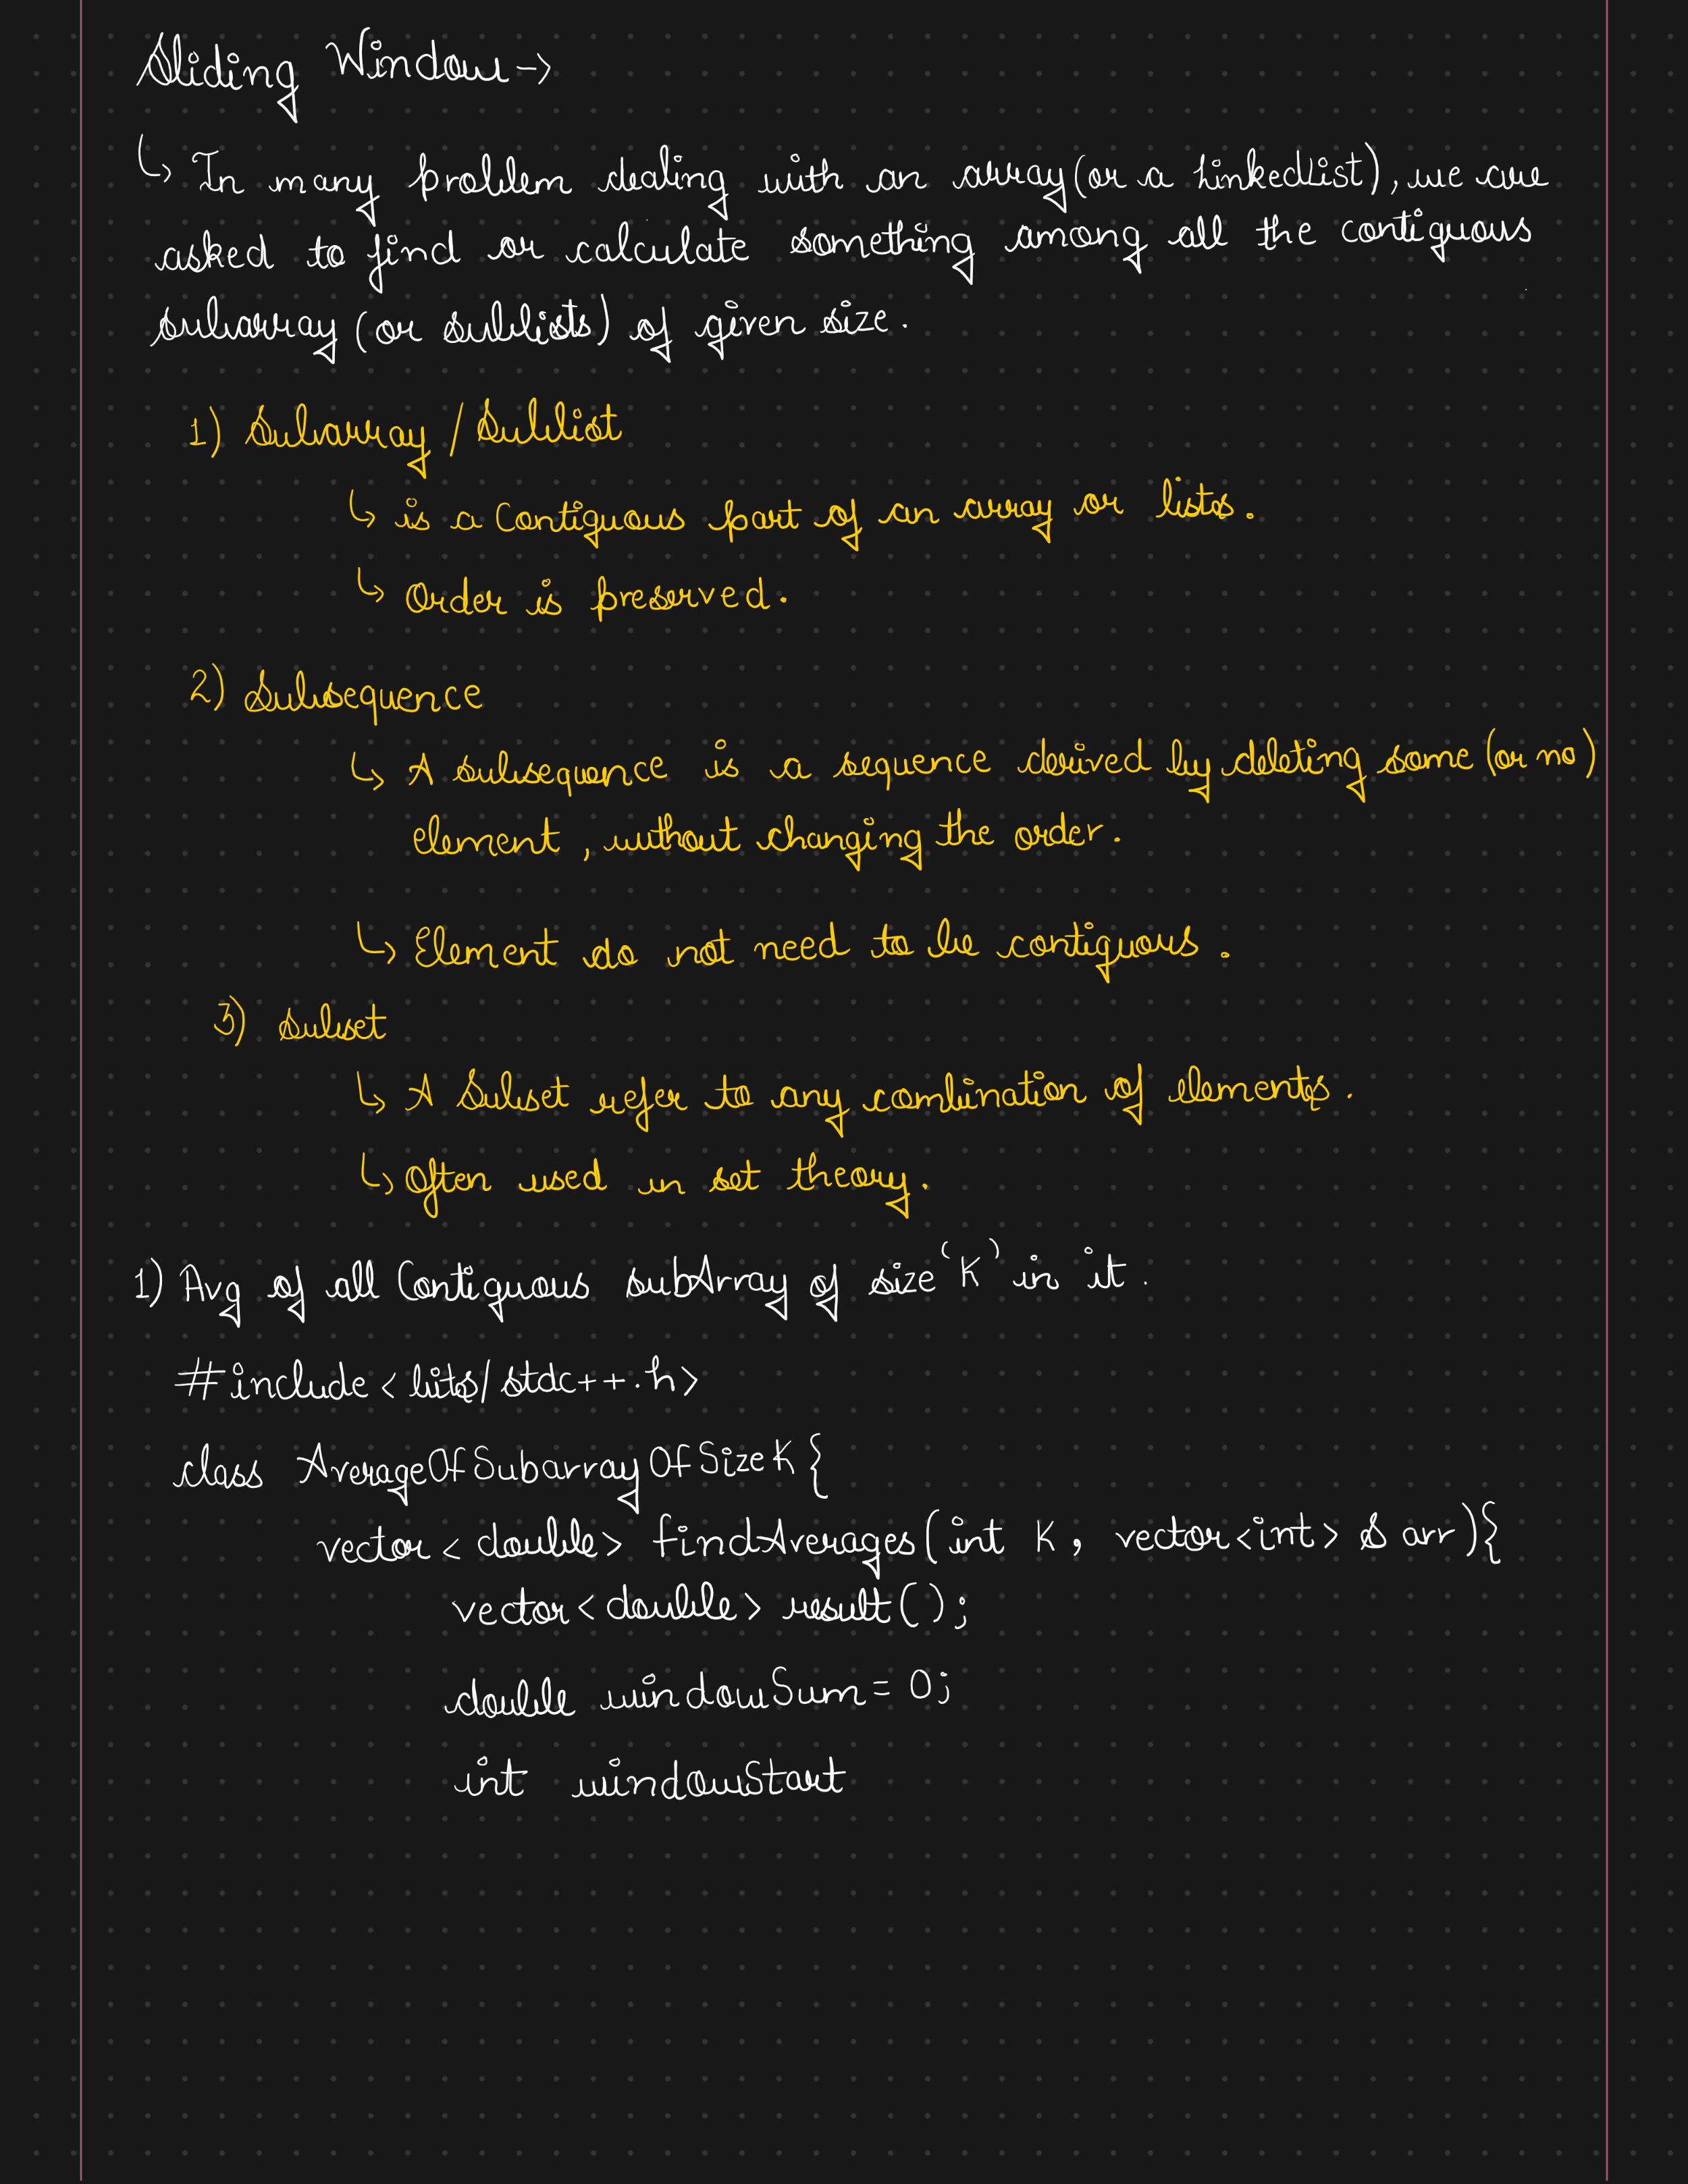 Sliding Window →
↳ In many problem dealing with an array (or a LinkedList), we are
asked to find or calculate something among all the contiguous
subarray (or sublists) of given size.
1) Subarray / Sublist
↳ is a Contiguous part of an array or lists.
↳ Order is preserved.
2) Subsequence
↳ A subsequence is a sequence derived by deleting some (or no)
element, without changing the order.
↳ Element do not need to be contiguous.
3) Subset
↳ A Subset refer to any combination of elements.
↳ Often used in set theory.
1) Avg of all Contiguous subArray of size 'K' in it.
#include <bits/stdc++.h>
class AverageOfSubarrayOfSizeK {
vector<double> findAverages(int K, vector<int> & arr){
vector<double> result();
double windowSum = 0;
int windowStart